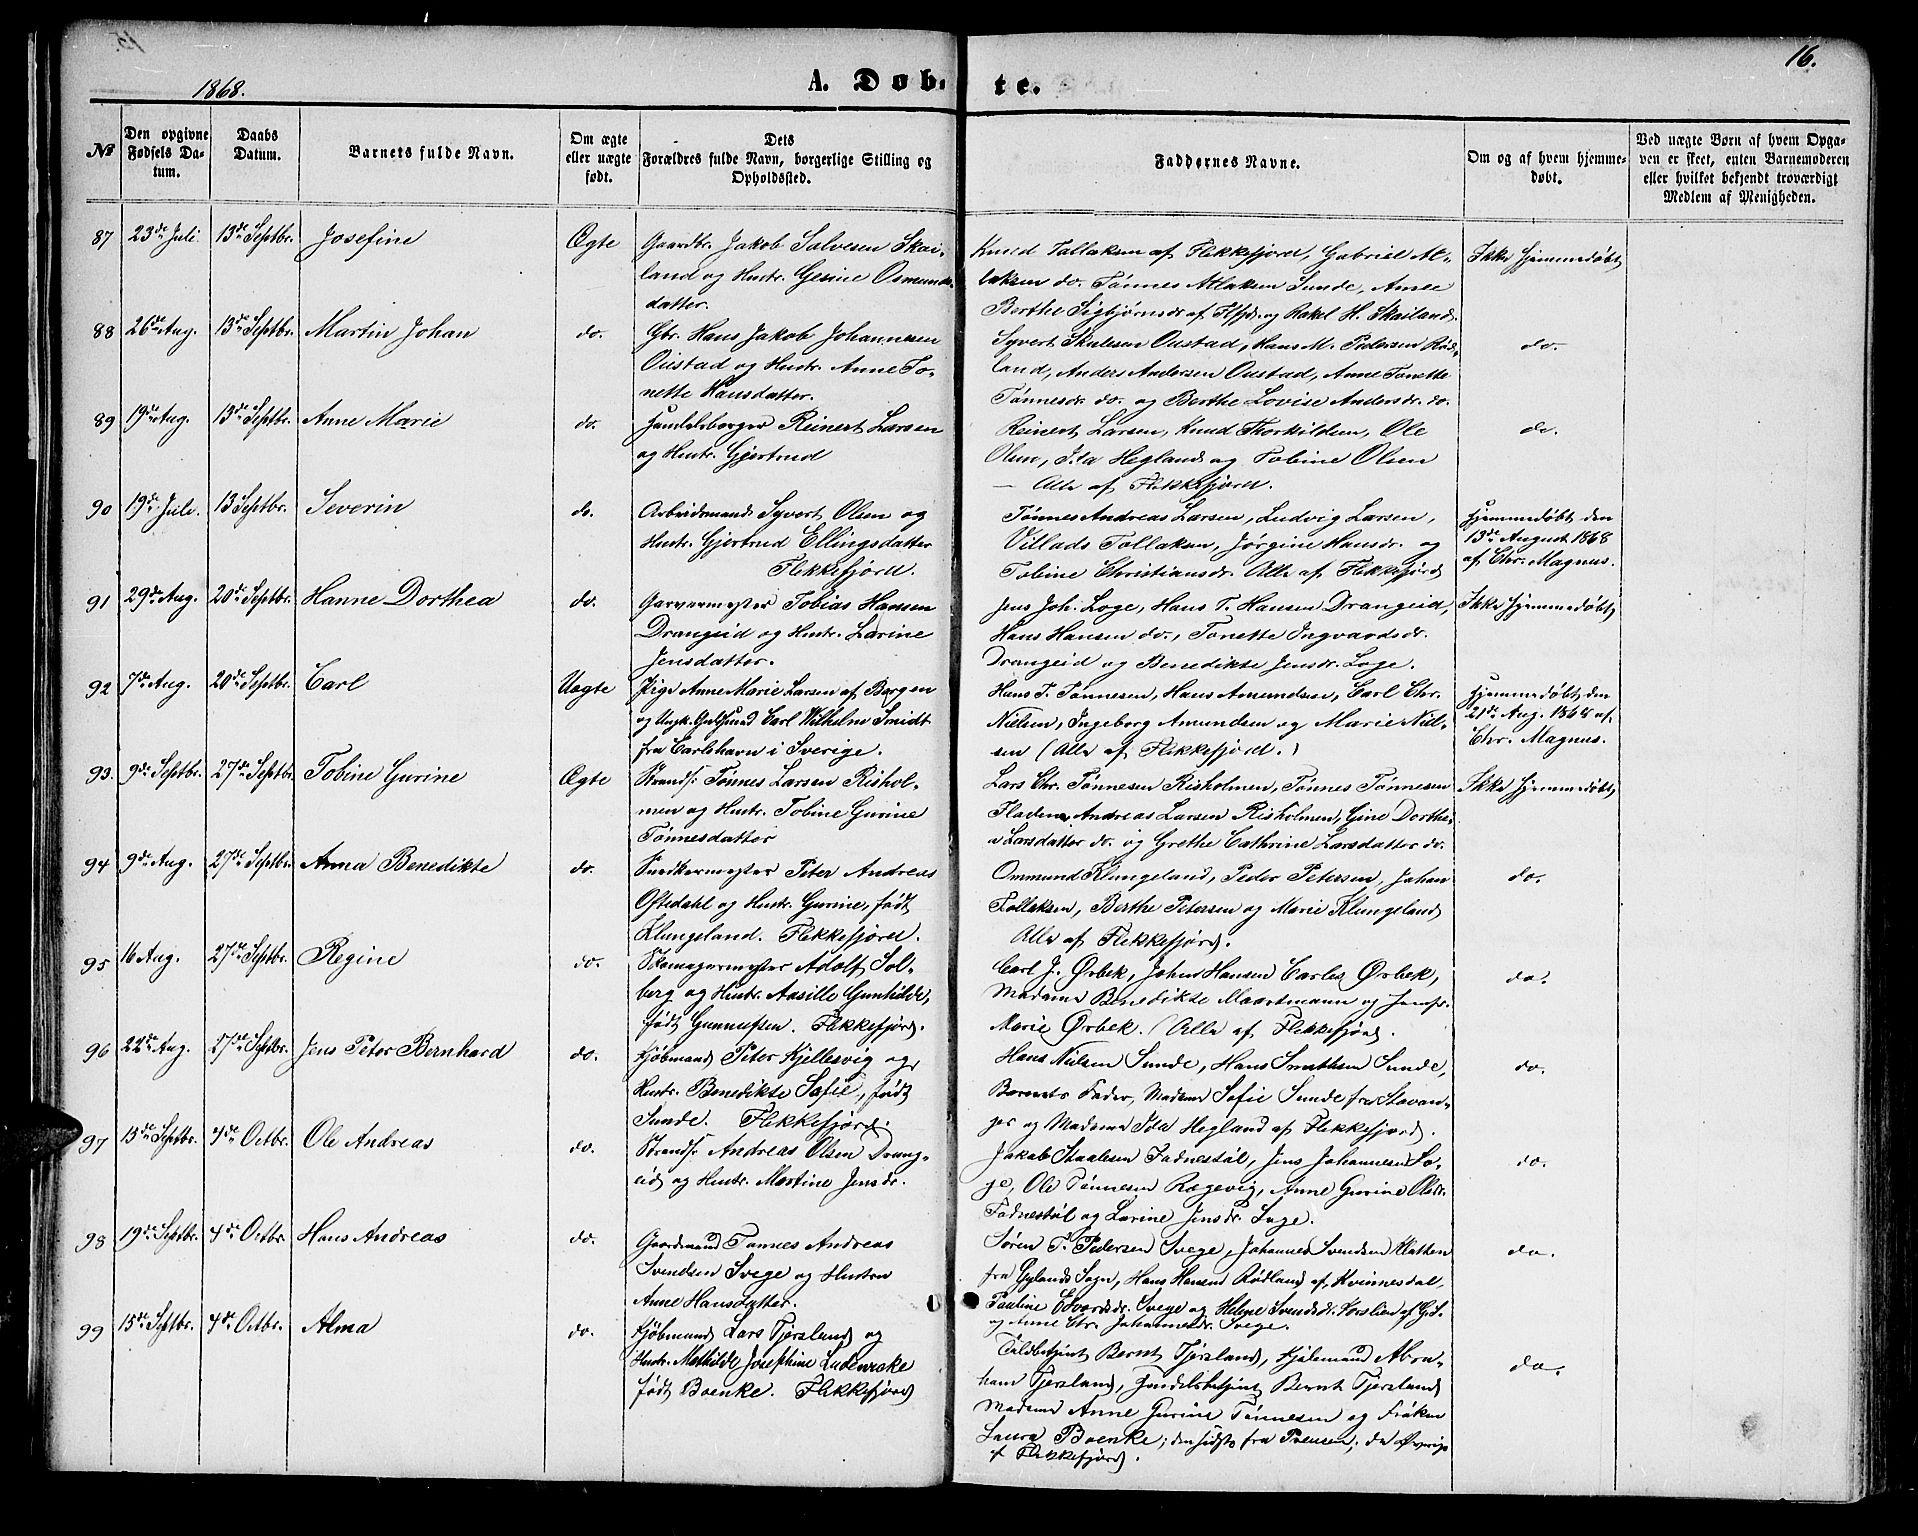 15.
1868.
A. Døb-
te.
16.
№
Den opgivne Fødsels Da-tum.
Daabs Datum.
Barnets fulde Navn.
Om ægte eller uægte født.
Dets Forældres fulde Navn, borgerlige Stilling og Opholdssted.
Faddernes Navne.
Om og af hvem hjemme-døbt.
Ved uægte Børn af hvem Opga-ven er skeet, enten Barnemoderen eller hvilket bekjendt troværdigt Medlem af Menigheden.
87 23de Juli. 13de Septbr. Josefine Ægte
Gaardbr. Jakob Salvesen Skai-
land og Hustr. Gesine Osmunds-
datter.
Knud Tallaksen af Flekkefjord, Gabriel At-
laksen do. Tønnes Atlaksen Sunde, Anne
Berthe Sigbjørnsdr. af Ffjd. og Rakel H. Skailand.
Ikke hjemmedøbt
88 26de Aug. 13de Septbr. Martin Johan do.
Gbr. Hans Jakob Johannesen
Oustad og Hustr. Anne To-
nette Hansdatter.
Syvert Skulesen Oustad, Hans M. Pedersen Rød-
land, Anders Andersen Oustad, Anne Tonette
Tønnesdr. do. og Berthe Lovise Andersdr. do.
do.
89 19de Aug. 13de Septbr. Anne Marie do.
Handelsborger Reinert Larsen
og Hustr. Gjertrud
Reinert Larsen, Knud Thorkildsen, Ole
Olsen, Ida Hegland og Tobine Olsen
— Alle af Flekkefjord.
do.
90 19de Juli. 13 Septbr. Severin do.
Arbeidsmand Syvert Olsen og
Hustr. Gjertrud Ellingsdatter
Flekkefjord.
Tønnes Andreas Larsen, Ludvig Larsen,
Villads Tollaksen, Jørgine Hansdr. og
Tobine Christiansdr. Alle af Flekkefjord
Hjemmedøbt den
13de August 1868
af Chr. Magnus.
91 29de Aug. 20de Septbr. Hanne Dorthea do.
Garvermester Tobias Hansen
Drangeid og Hustr. Larine
Jensdatter.
Jens Joh. Loge, Hans T. Hansen Drangeid,
Hans Hansen do., Tonette Ingvardsdr.
Drangeid og Benedikte Jensdr. Loge.
Ikke hjemmedøbt
92 7de Aug. 20de Septbr. Carl Uægte
Pige Anne Marie Larsen af Bergen
og Ungk. Guldsmd Carl Wilhelm Smidt
fra Carlshavn i Sverige.
Hans T. Tønnesen, Hans Amundsen, Carl Chr.
Nielsen, Ingeborg Amundsen og Marie Niel-
sen (Alle af Flekkefjord.)
Hjemmedøbt den
21de Aug. 1868 af
Chr. Magnus.
93. 9de Septbr. 27de Septbr. Tobine Gurine Ægte
Strands. Tønnes Larsen Rishol-
men og Hustr. Tobine Gurine
Tønnesdatter
Lars Chr. Tønnesen Risholmen, Tønnes Tønnesen
Fladen, Andreas Larsen Risholmen, Gine Dorthe-
a Larsdatter do. og Grethe Cathrine Larsdatter do.
Ikke hjemmedøbt
94 9de Aug. 27de Septbr. Anna Benedikte do.
Snedkermester Peter Andreas
Oftedahl og Hustr. Gurine, født
Klungeland. Flekkefjord.
Ommund Klungeland, Peder Petersen, Johan
Tollaksen, Berthe Petersen og Marie Klungeland
Alle af Flekkefjord.
do.
95 16 Aug. 27de Septbr. Regine do.
Skomagermester Adolf Sol-
berg og Hustr. Aasille Gunhilde,
født Gunnufsen. Flekkefjord.
Carl J. Ørbek, Johns Hansen Carles Ørbek,
Madame Benedikte Maartmann og Jomfr.
Marie Ørbek. (Alle af Flekkefjord.
do.
96 22de Aug. 27de Septbr. Jens Peter Bernhard do.
Kjøbmand Peter Kjellesvig og
Hustr. Benedikte Sofie, født
Sunde. Flekkefjord.
Hans Nielsen Sunde, Hans Smithsen Sunde,
Barnets Fader, Madame Sofie Sunde fra Stavan-
ger og Madame Ida Hegland af Flekkefjord.
do.
97 15de Septbr. 4de Octbr. Ole Andreas do.
Strands. Andreas Olsen Drang-
eid og Hustr. Martine Jensdr.
Jakob Staalesen Fadnestøl, Jens Johannesen Lo-
ge, Ole Tønnesen Rægevig, Anne Gurine Olsdr.
Fadnestøl og Larine Jensdr. Loge.
do.
98 19de Septbr. 4de Octbr. Hans Andreas do.
Gaardmand Tønnes Andreas
Svendsen Svege og Hustru
Anne Hansdatter.
Søren T. Pedersen Svege, Johannes Svendsen Flatten
fra Gylands Sogn, Hans Hansen Rødland af Kvinnesdal
Pauline Edvardsdr. Svege og Helene Svendsdr. Korslien af Gyl.
og Anne Chr. Johannesdr. Svege.
do.
99 15de Septbr. 4de Octbr. Alma do.
Kjøbmand Lars Tjersland og
Hustr. Mathilde Josephine
født Boenke. Flekkefjord
Toldbetjent Bernt Tjersland, Kjøbmand Abra-
ham Tjersland, Handelsbetjent Bernt Tjersland
Madame Anne Gurine Tønnesen og Frøken
Laura Boenke; den sidste fra Preusen; de Øvrige
af Flekkefjord.
do.